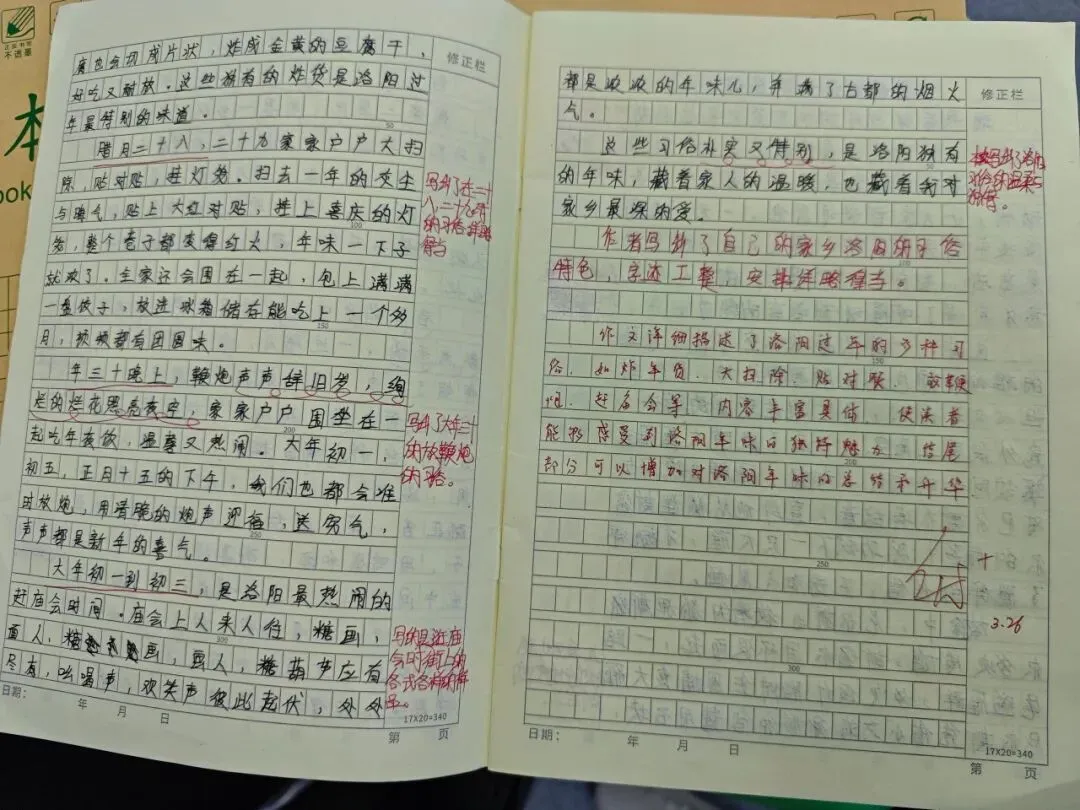 本
book
不透墨
修正栏
腐也会切成片状，炸成金黄的豆腐干，
好吃又耐放。这些独有的炸货是洛阳过
年最特别的味道。
腊月二十八，二十九家家户户大扫
除，贴对贴，挂灯笼。扫去一年的灰尘
与晦气，贴上大红对贴，挂上喜庆的灯
笼，整个巷子都变得红火，年味一下子
就浓了。全家还会围在一起，包上满满
一盘饺子，放进冰箱储存能吃上一个多
月，顿顿都有团圆味。
年三十晚上，鞭炮声声辞旧岁，绚
烂的烂花照亮夜空，家家户户围坐在一
起吃年夜饭，温馨又热闹。大年初一，
初五，正月十五的下午，我们也都会准
时放炮，用清脆的炮声迎福，送穷气，
声声都是新年的喜气。
大年初一到初三，是洛阳最热闹的
赶庙会时间。庙会上人来人往，糖画，
面人，糖画，面人，糖葫芦应有
尽有，吆喝声，欢笑声彼此起伏，处处
写出了在二十
八、二十九时
的习俗，详略
得当
写出了大年三十
的放鞭炮
的习俗。
写的是逛庙
会时街上的
各式各样的
日期： 年 月 日
17X20=340
第 页
修正栏
都是浓浓的年味儿，弃满了古都的烟火
气。
这些习俗朴实又特别，是洛阳独有
的年味，藏着家人的温暖，也藏着我对
家乡最深的爱。
写出了洛阳
习俗的温柔与
独特。
作者写出了自己的家乡洛阳的习俗
特色，字迹工整，安排详略得当。
作文详细描述了洛阳过年的多种习
俗，如炸年货、大扫除、贴对联、放鞭
炮、赶庙会等，内容丰富具体，使读者
能够感受到洛阳年味的独特魅力，结尾
部分可以增加对洛阳年味的总结和升华
优+
3.26
日期： 年 月 日
17X20=340
第 页